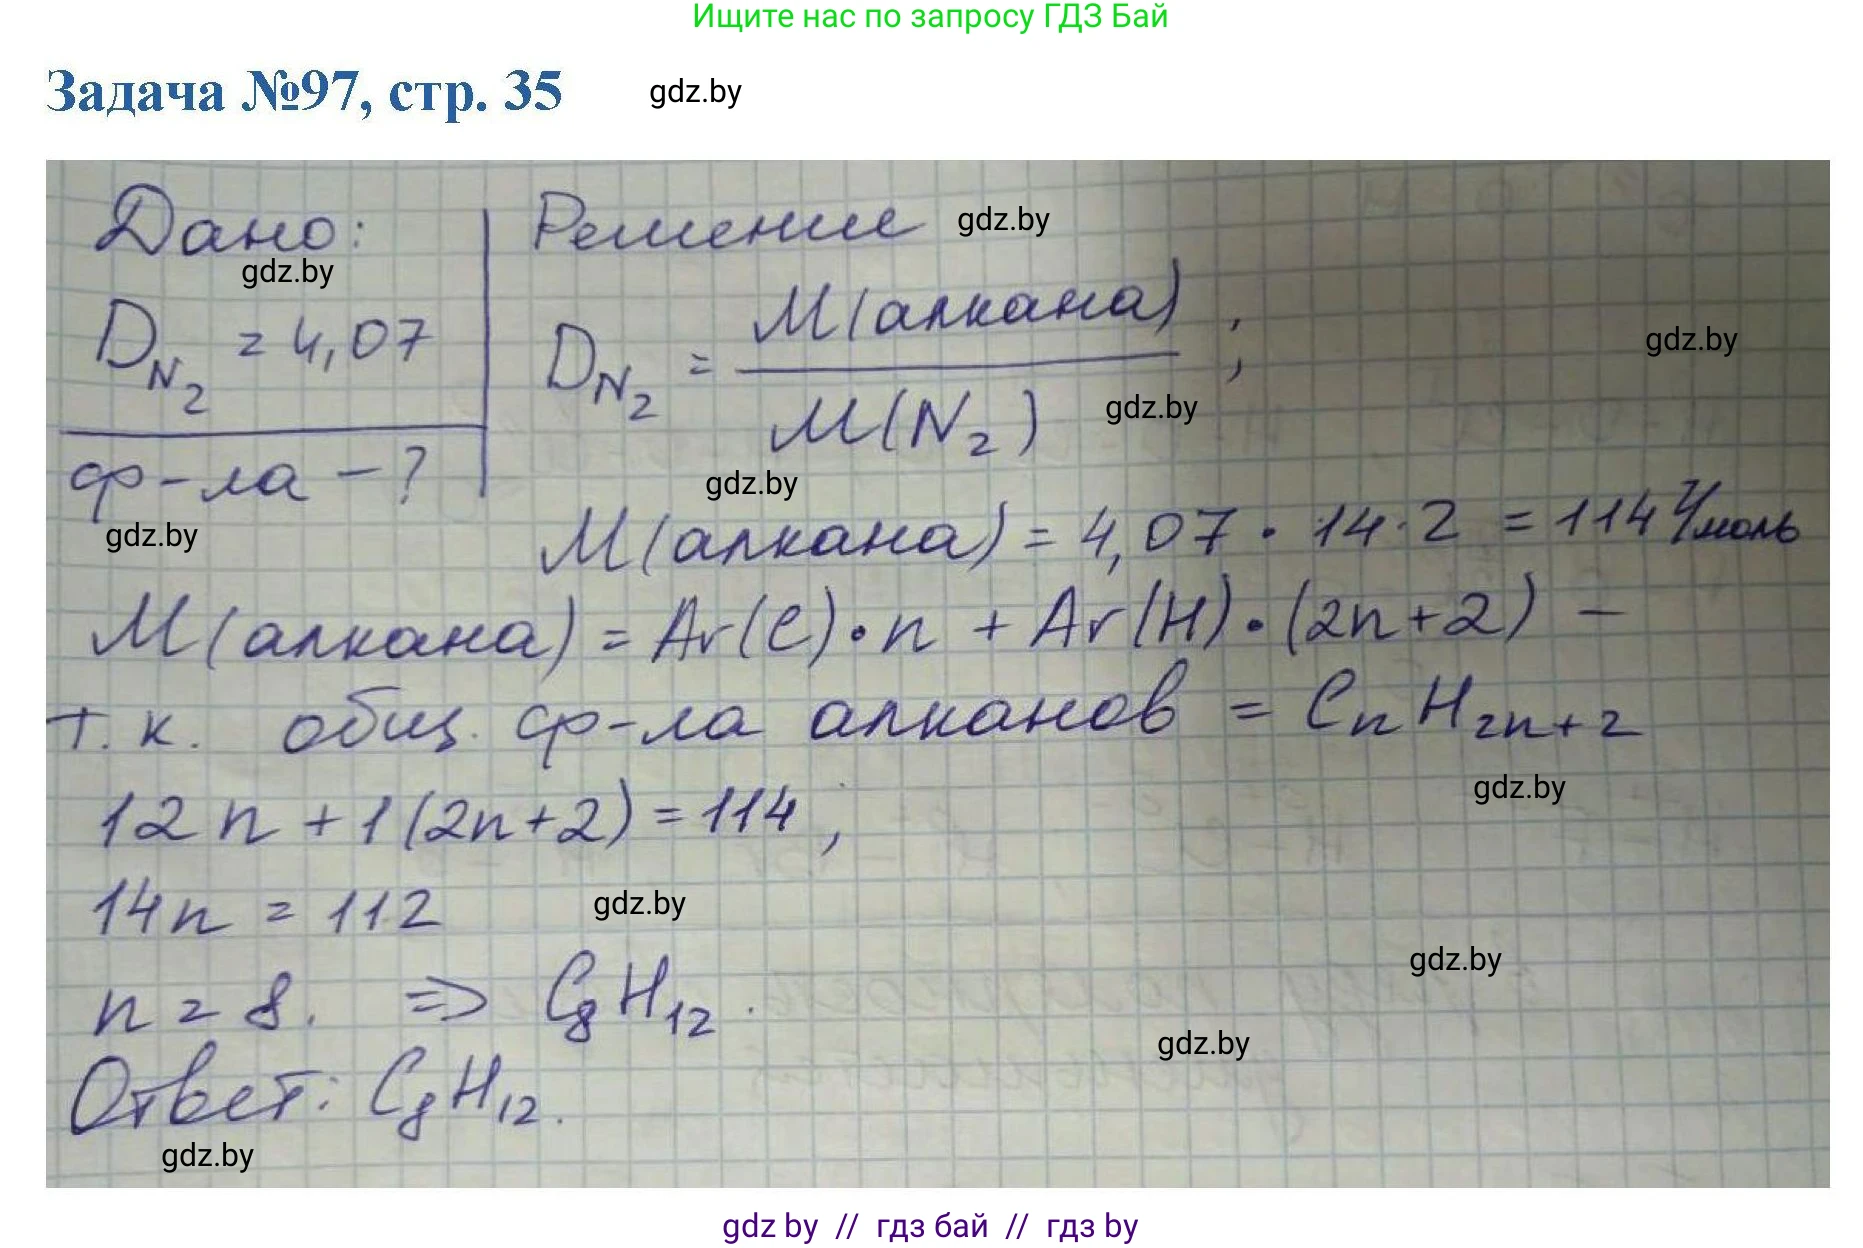 Ищите нас по запросу ГДЗ Бай
Задача №97, стр. 35 gdz.by
Дано: Решение gdz.by
gdz.by
D_N₂ = 4,07 D_N₂ = M(алкана) / M(N₂) ; gdz.by
gdz.by
ф-ла - ? gdz.by
gdz.by
M(алкана) = 4,07 · 14 · 2 = 114 г/моль
M(алкана) = Ar(C) · n + Ar(H) · (2n+2) –
т.к. общ. ф-ла алканов = CₙH₂ₙ₊₂
gdz.by
12n + 1(2n+2) = 114 ;
14n = 112 gdz.by
gdz.by
n = 8. => C₈H₁₂.
gdz.by
Ответ: C₈H₁₂.
gdz.by
gdz by // гдз бай // гдз by